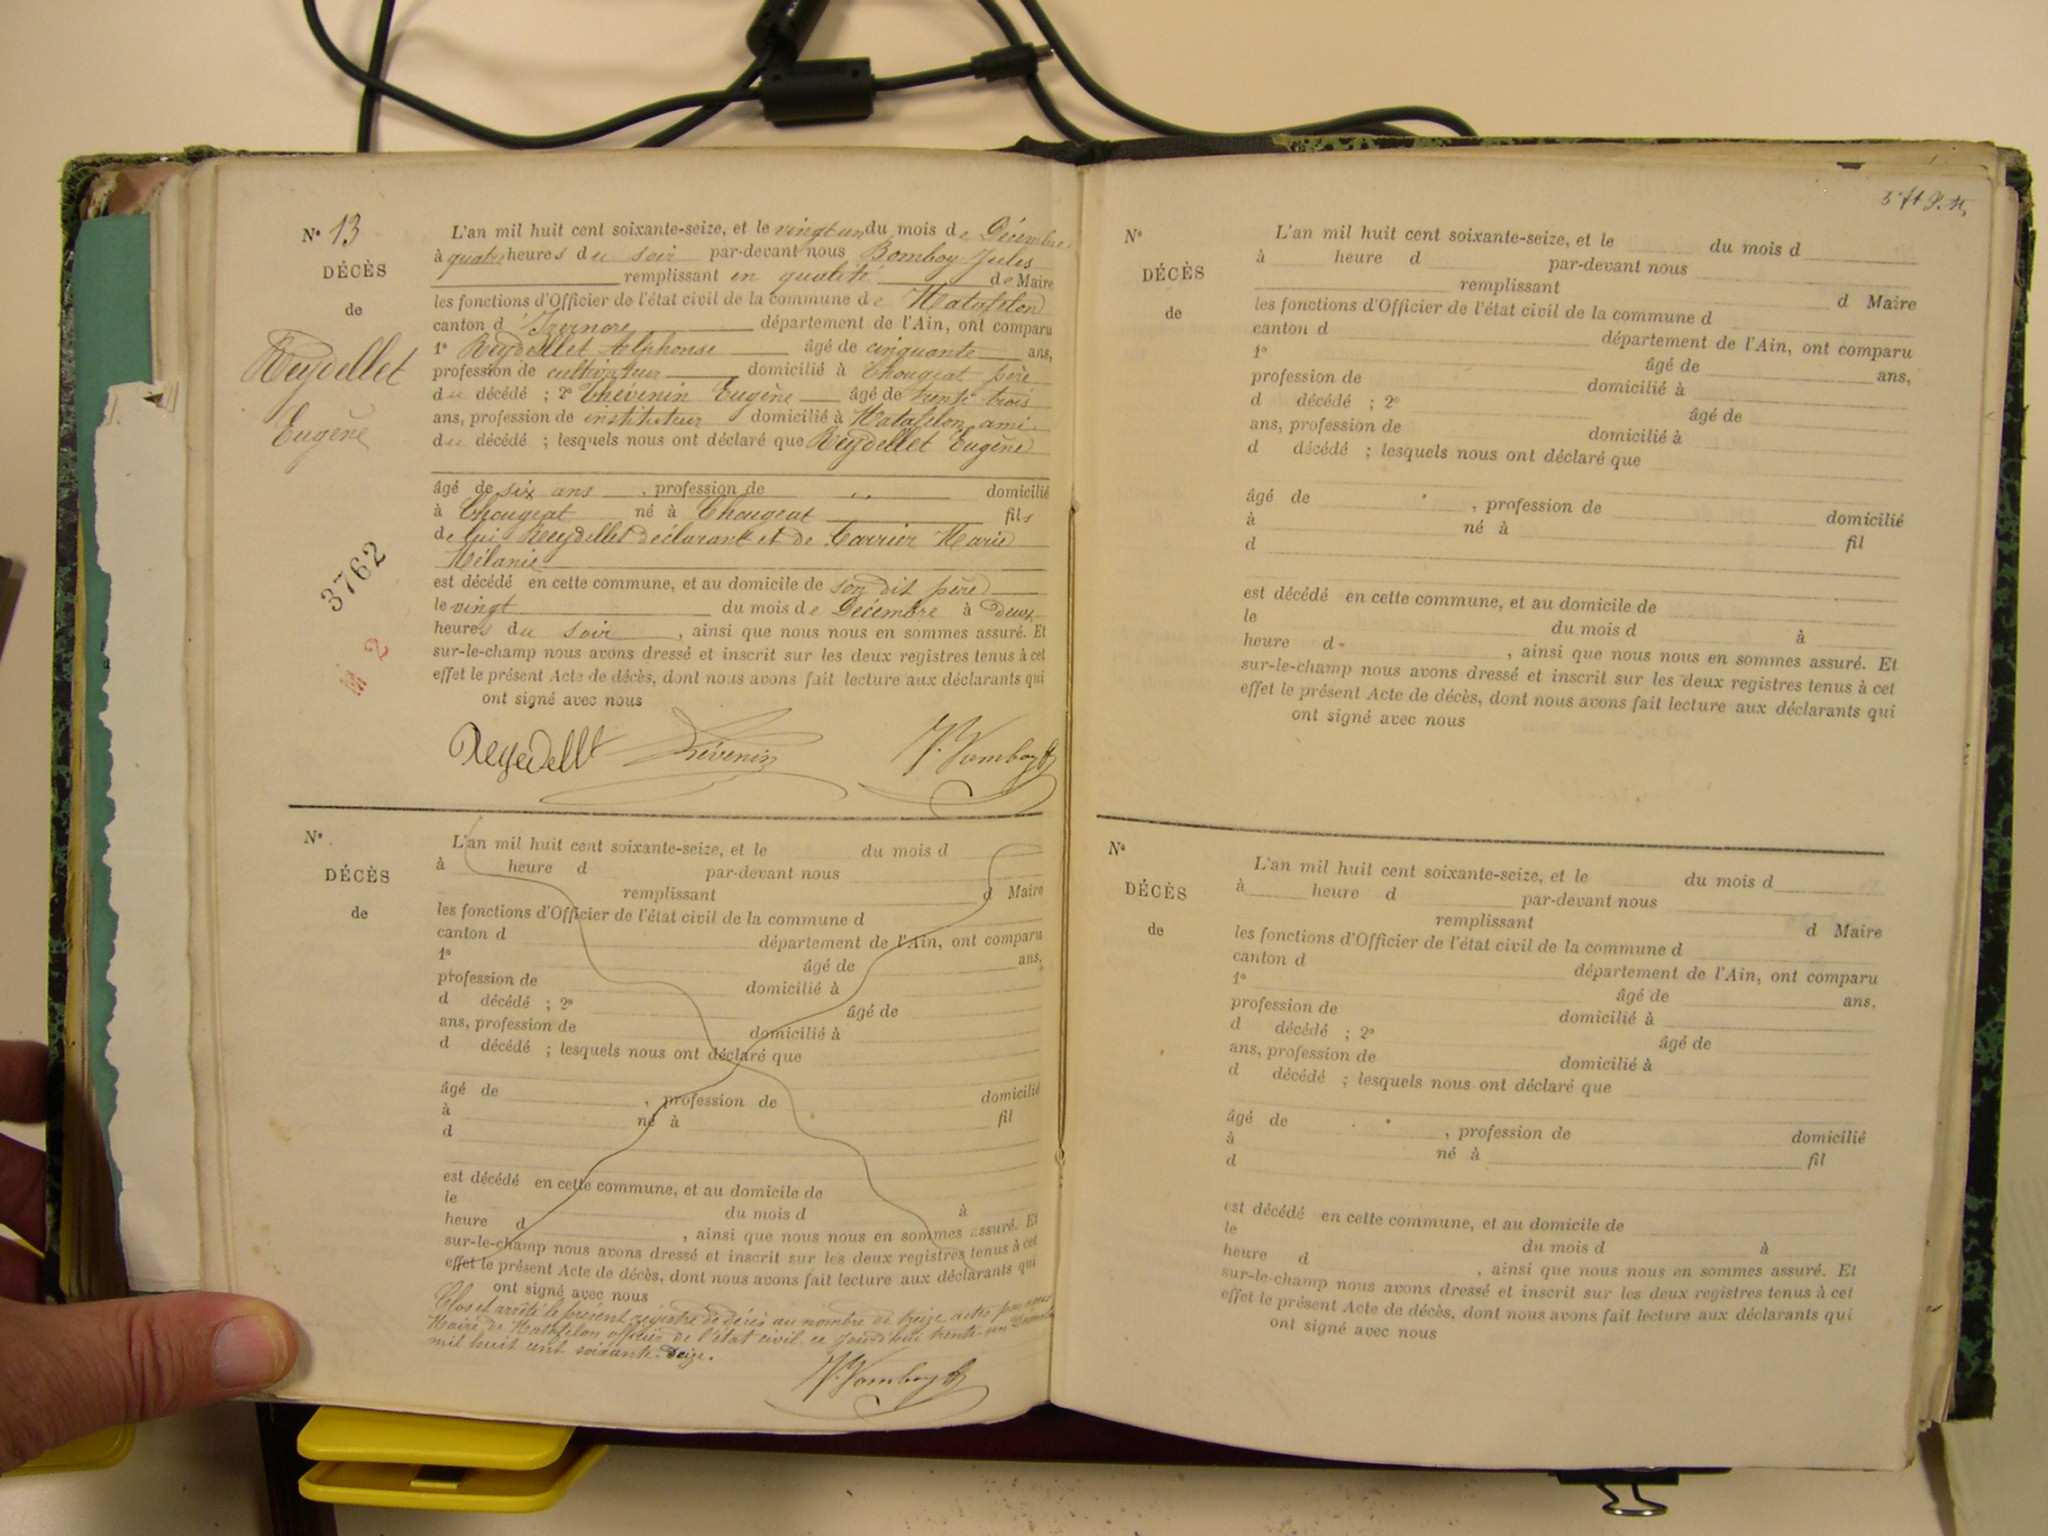 N° 13
DÉCÈS
de
Reydellet
Eugène
3762
M 2
L'an mil huit cent soixante-seize, et le vingt un du mois de Décembre
à quatre heures du soir par-devant nous Bomboy Jules
remplissant en qualité de Maire
les fonctions d'Officier de l'état civil de la commune de Matafelon
canton d'Izernore département de l'Ain, ont comparu
1° Reydellet Alphonse âgé de cinquante ans,
profession de cultivateur domicilié à Chougeat père
du décédé ; 2° Thévenin Eugène âgé de trente trois
ans, profession de instituteur domicilié à Matafelon, ami
du décédé ; lesquels nous ont déclaré que Reydellet Eugène
âgé de six ans , profession de domicilié
à Chougeat né à Chougeat fils
de lui Reydellet déclarant et de Carrier Marie
Mélanie
est décédé en cette commune, et au domicile de son dit père
le vingt du mois de Décembre à Deux
heures du soir , ainsi que nous nous en sommes assuré. Et
sur-le-champ nous avons dressé et inscrit sur les deux registres tenus à cet
effet le présent Acte de décès, dont nous avons fait lecture aux déclarants qui
ont signé avec nous
Reydellet Thévenin J. Bomboy
N°
DÉCÈS
de
L'an mil huit cent soixante-seize, et le du mois d
à heure d par-devant nous
remplissant d Maire
les fonctions d'Officier de l'état civil de la commune d
canton d département de l'Ain, ont comparu
1° âgé de ans,
profession de domicilié à
d décédé ; 2° âgé de
ans, profession de domicilié à
d décédé ; lesquels nous ont déclaré que
âgé de , profession de domicilié
à né à fil
d
est décédé en cette commune, et au domicile de
le du mois d à
heure d , ainsi que nous nous en sommes assuré. Et
sur-le-champ nous avons dressé et inscrit sur les deux registres tenus à cet
effet le présent Acte de décès, dont nous avons fait lecture aux déclarants qui
ont signé avec nous
Clos et arrêté le présent registre de décès au nombre de treize actes par nous
Maire de Matafelon officier de l'état civil ce jourd'hui trente-un Décembre
mil huit cent soixante-seize.
J. Bomboy
N°
DÉCÈS
de
L'an mil huit cent soixante-seize, et le du mois d
à heure d par-devant nous
remplissant d Maire
les fonctions d'Officier de l'état civil de la commune d
canton d département de l'Ain, ont comparu
1° âgé de ans,
profession de domicilié à
d décédé ; 2° âgé de
ans, profession de domicilié à
d décédé ; lesquels nous ont déclaré que
âgé de , profession de domicilié
à né à fil
d
est décédé en cette commune, et au domicile de
le du mois d à
heure d , ainsi que nous nous en sommes assuré. Et
sur-le-champ nous avons dressé et inscrit sur les deux registres tenus à cet
effet le présent Acte de décès, dont nous avons fait lecture aux déclarants qui
ont signé avec nous
N°
DÉCÈS
de
L'an mil huit cent soixante-seize, et le du mois d
à heure d par-devant nous
remplissant d Maire
les fonctions d'Officier de l'état civil de la commune d
canton d département de l'Ain, ont comparu
1° âgé de ans.
profession de domicilié à
d décédé ; 2° âgé de
ans, profession de domicilié à
d décédé ; lesquels nous ont déclaré que
âgé de , profession de domicilié
à né à fil
d
est décédé en cette commune, et au domicile de
le du mois d à
heure d , ainsi que nous nous en sommes assuré. Et
sur-le-champ nous avons dressé et inscrit sur les deux registres tenus à cet
effet le présent Acte de décès, dont nous avons fait lecture aux déclarants qui
ont signé avec nous